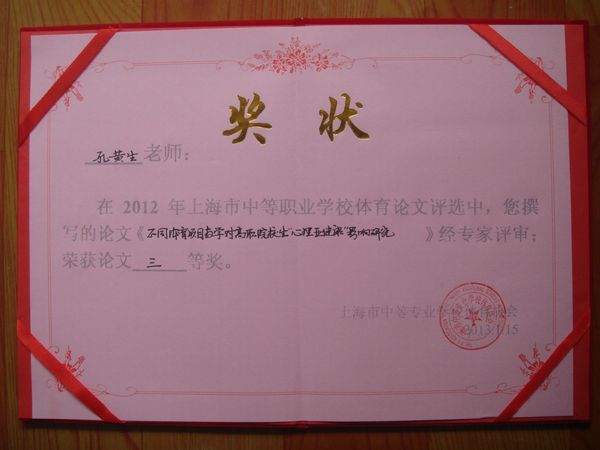 奖状
孔黄生老师：
在 2012 年上海市中等职业学校体育论文评选中，您撰
写的论文《不同体育项目教学对高职院校生"心理亚健康"影响研究》经专家评审；
荣获论文三等奖。
上海市中等专业学 体育 会
2013.1.15